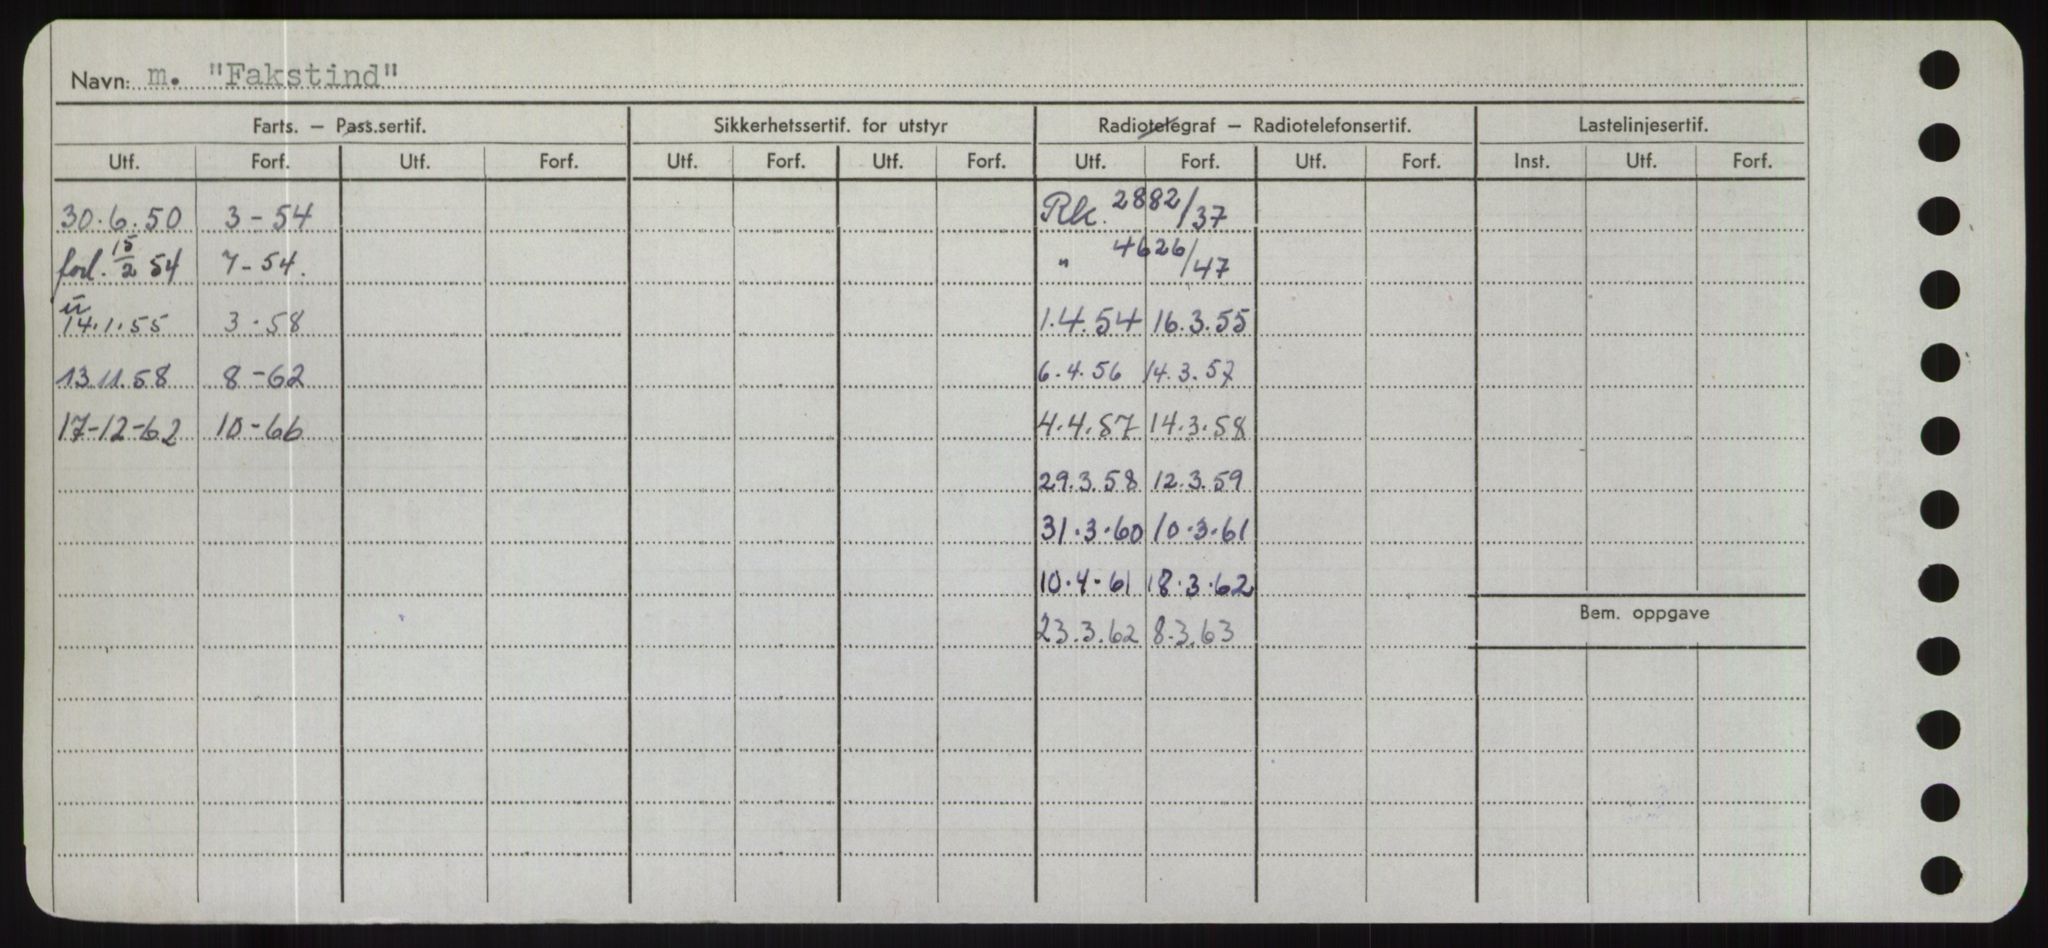 Navn: m. "Fakstind"
Farts. – Pass.sertif. Sikkerhetssertif. for utstyr Radiotelegraf – Radiotelefonsertif. Lastelinjesertif.
Utf. Forf. Utf. Forf. Utf. Forf. Utf. Forf. Utf. Forf. Utf. Forf. Inst. Utf. Forf.
30.6.50 3-54 Rk. 2882/37
forl. 15/2 54 7-54. " 4626/47
14.1.55 3.58 1.4.54 16.3.55
13.11.58 8-62 6.4.56 14.3.57
17-12-62 10-66 4.4.57 14.3.58
29.3.58 12.3.59
31.3.60 10.3.61
10.4-61 18.3.62
Bem. oppgave
23.3.62 8.3.63